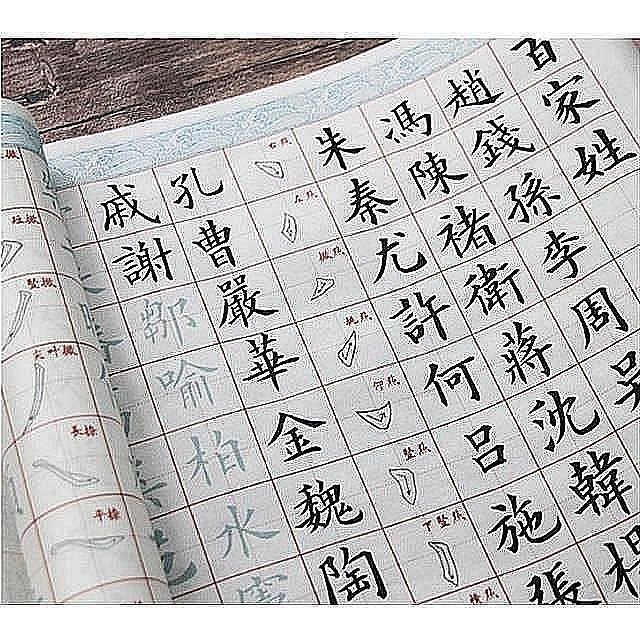 百家姓
趙錢孫李周吳
馮陳褚衛蔣沈韓楊
朱秦尤許何呂施張
右點
左點
撇點
挑點
仰點
豎點
下豎點
橫點
孔曹嚴華金魏陶
戚謝鄒喻柏水竇
短撇
豎撇
尖叶撇
長橫
平橫